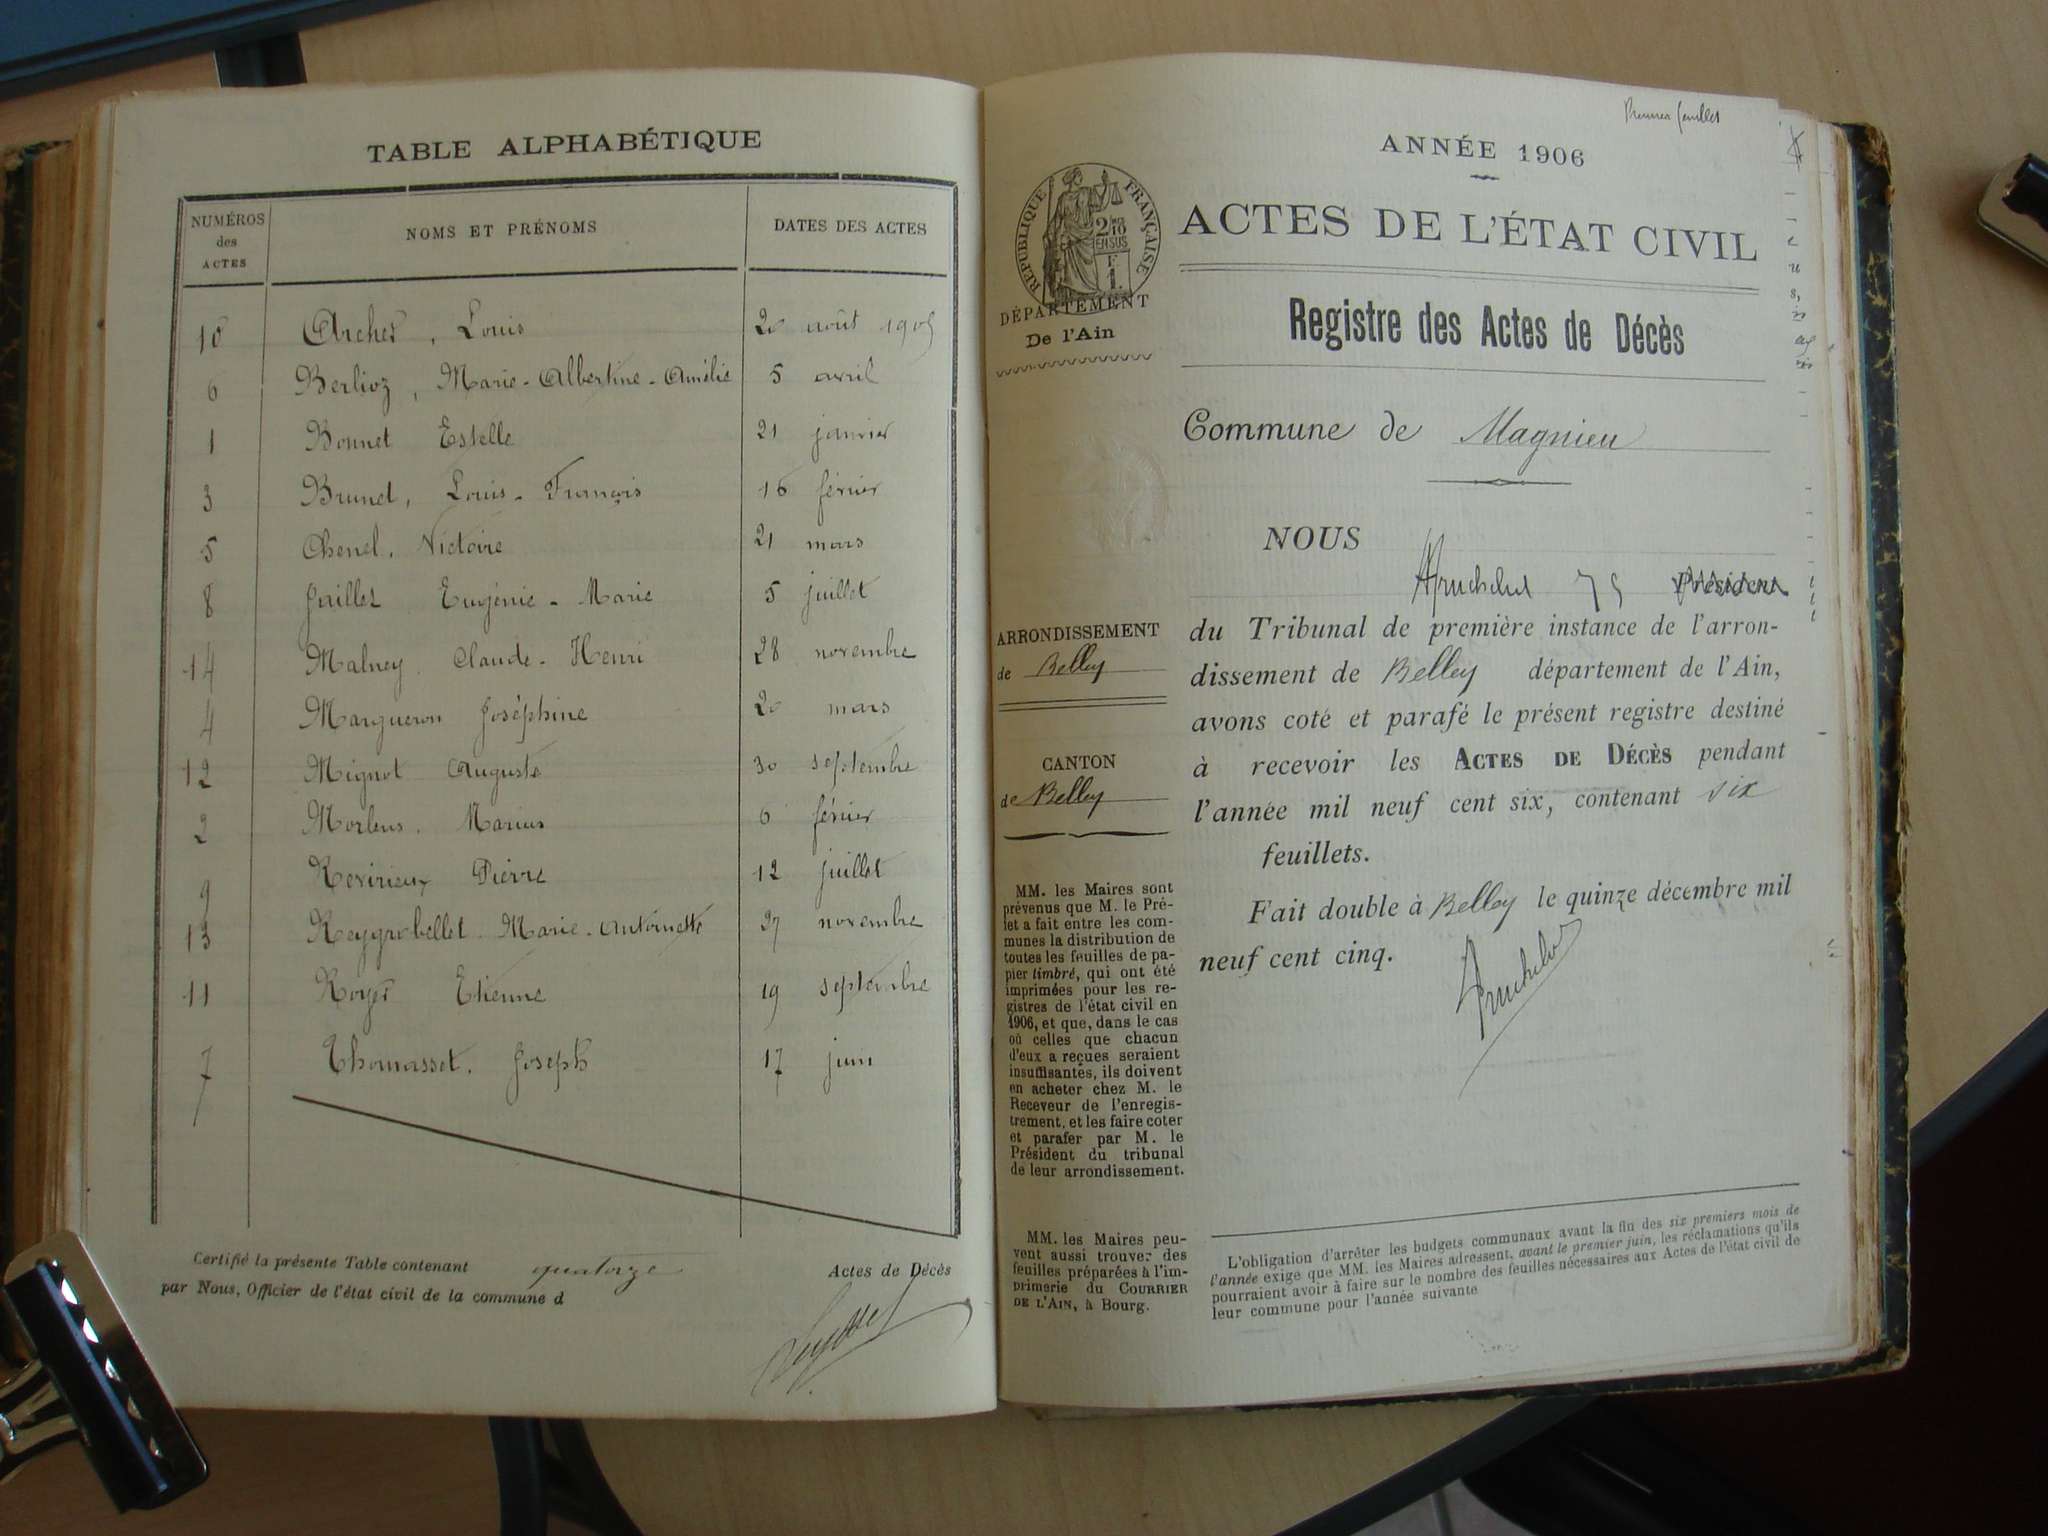 TABLE ALPHABÉTIQUE
NUMÉROS des ACTES NOMS ET PRÉNOMS DATES DES ACTES
10 Archer, Louis 20 août 1905
6 Berlioz, Marie-Albertine-Amélie 5 avril
1 Bonnet Estelle 21 janvier
3 Brunet, Louis-François 16 février
5 Chenel, Victoire 21 mars
8 Jaillet Eugénie-Marie 5 juillet
14 Malney Claude-Henri 28 novembre
4 Margueron Joséphine 20 mars
12 Mignot Auguste 30 septembre
2 Morleus, Marius 6 février
9 Revirieux Pierre 12 juillet
13 Reygrobellet Marie-Antoinette 27 novembre
11 Royer Etienne 19 septembre
7 Thomasset, Joseph 17 juin
Certifié la présente Table contenant quatorze Actes de Décès
par Nous, Officier de l'état civil de la commune d
Premier feuillet
ANNÉE 1906
RÉPUBLIQUE FRANÇAISE
2/10 EN SUS
F 1.
ACTES DE L'ÉTAT CIVIL
DÉPARTEMENT
De l'Ain
Registre des Actes de Décès
Commune de Magnieu
NOUS
Président
ARRONDISSEMENT
de Belley
CANTON
de Belley
du Tribunal de première instance de l'arron-
dissement de Belley département de l'Ain,
avons coté et parafé le présent registre destiné
à recevoir les ACTES DE DÉCÈS pendant
l'année mil neuf cent six, contenant six
feuillets.
Fait double à Belley le quinze décembre mil
neuf cent cinq.
MM. les Maires sont
prévenus que M. le Pré-
fet a fait entre les com-
munes la distribution de
toutes les feuilles de pa-
pier timbré, qui ont été
imprimées pour les re-
gistres de l'état civil en
1906, et que, dans le cas
où celles que chacun
d'eux a reçues seraient
insuffisantes, ils doivent
en acheter chez M. le
Receveur de l'enregis-
trement, et les faire coter
et parafer par M. le
Président du tribunal
de leur arrondissement.
MM. les Maires peu-
vent aussi trouver des
feuilles préparées à l'im-
primerie du COURRIER
DE L'AIN, à Bourg.
L'obligation d'arrêter les budgets communaux avant la fin des six premiers mois de
l'année exige que MM. les Maires adressent, avant le premier juin, les réclamations qu'ils
pourraient avoir à faire sur le nombre des feuilles nécessaires aux Actes de l'état civil de
leur commune pour l'année suivante